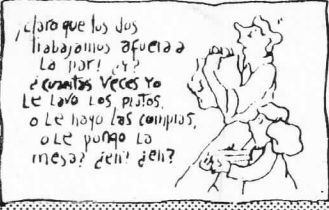 ¡claro que los dos
trabajamos afuera a
la par! ¿Y?
¿cuantas veces yo
le lavo los platos,
o le hago las compras,
o le pongo la
mesa? ¿eh? ¿eh?